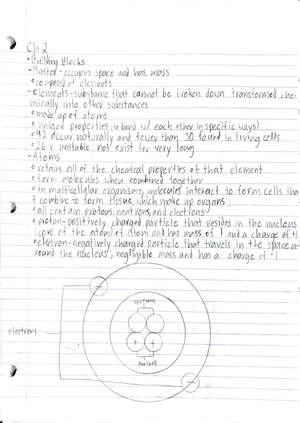 Ch 2
• Building Blocks
-Matter- occupies space and has mass
o composed of elements
-elements- substance that cannot be broken down transformed che-
mically into other substances
o made up of atoms
o unique properties (to bond w/ each other in specific ways)
o 92 occur naturally and fewer than 30 found in living cells
o 26 r unstable; not exist for very long
-Atoms
o retains all of the chemical properties of that element
o form molecules when combined together
o in multicellular organisms, molecules interact to form cells tha
t combine to form tissue, which make up organs
o all contain protons, neutrons, and electrons
o proton- positively charged particle that resides in the nucleus
(core of the atom) of atom and has mass of 1 and a charge of +1
o electron- negatively charged particle that travels in the space a-
round the nucleus; negligible mass and has a charge of -1
neutrons
electrons
protons